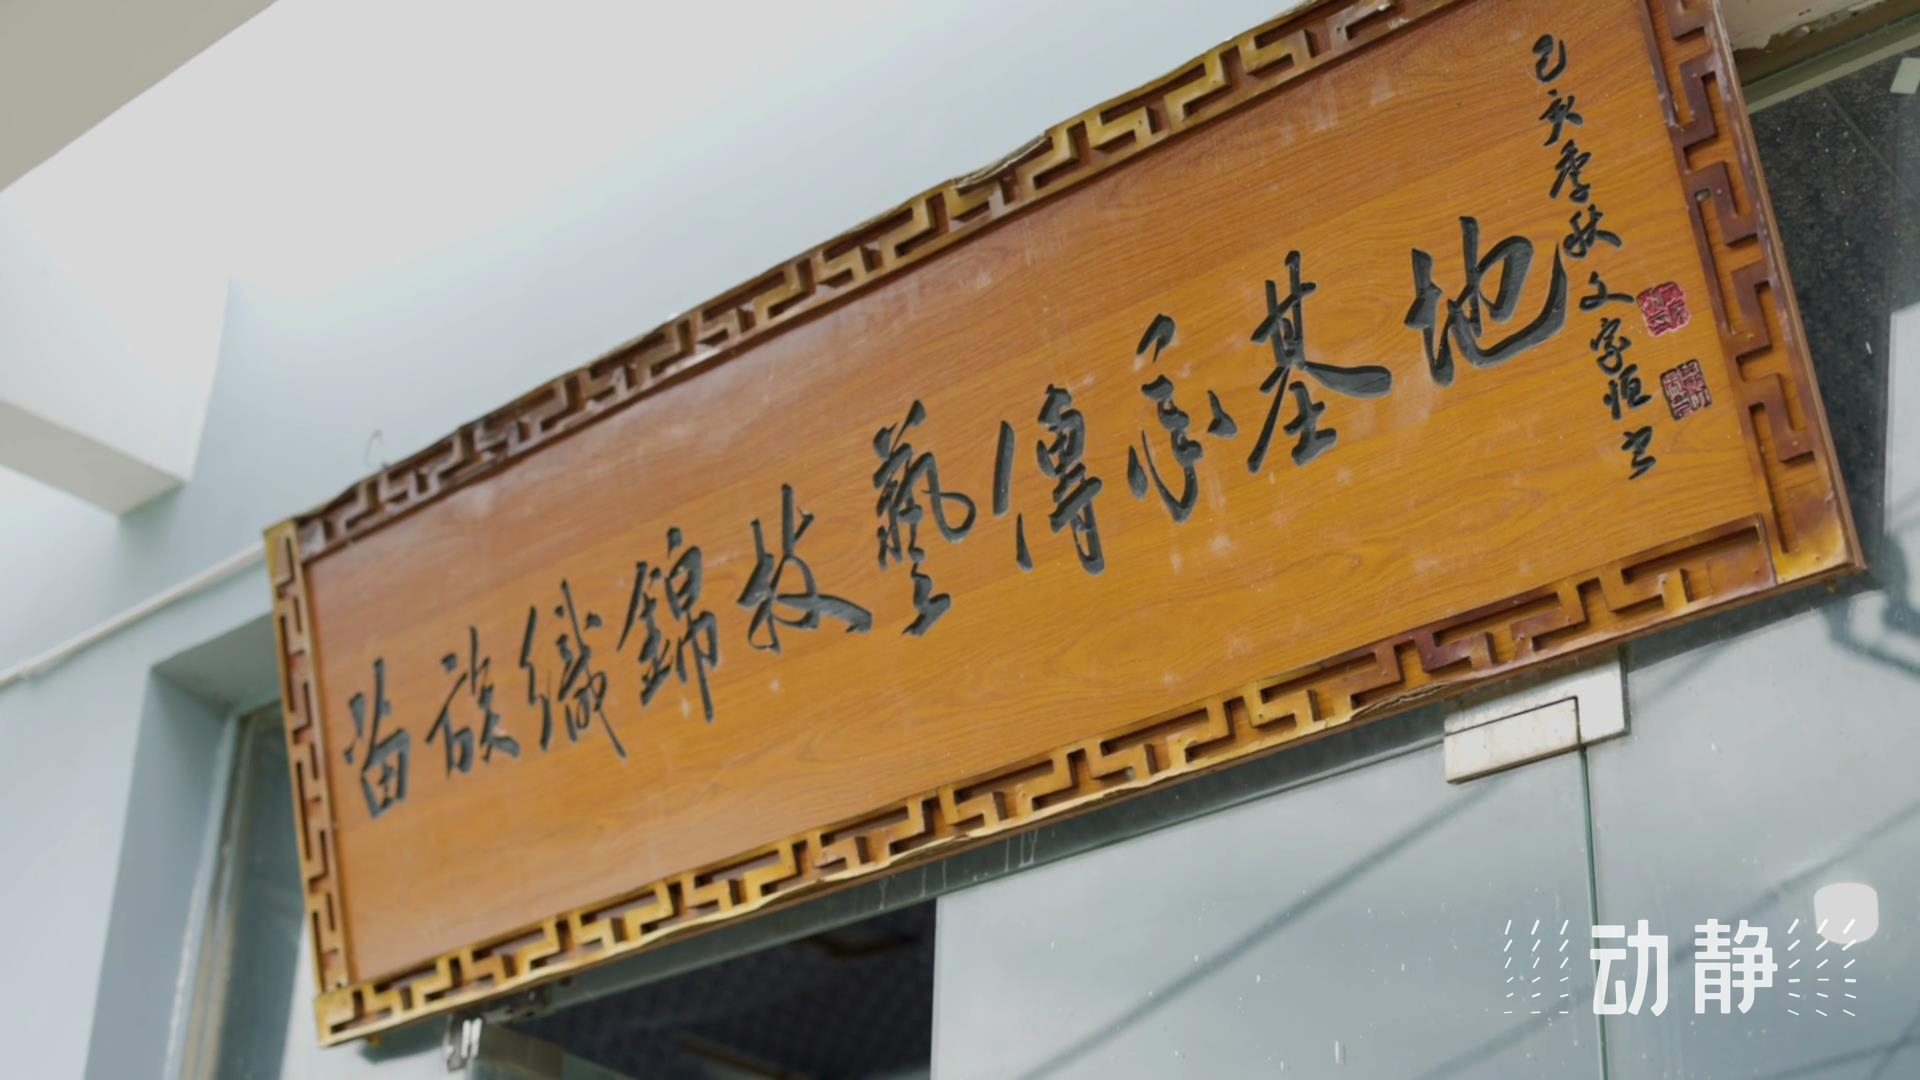 苗族織錦技藝傳承基地
己亥季秋文家恒书
动静